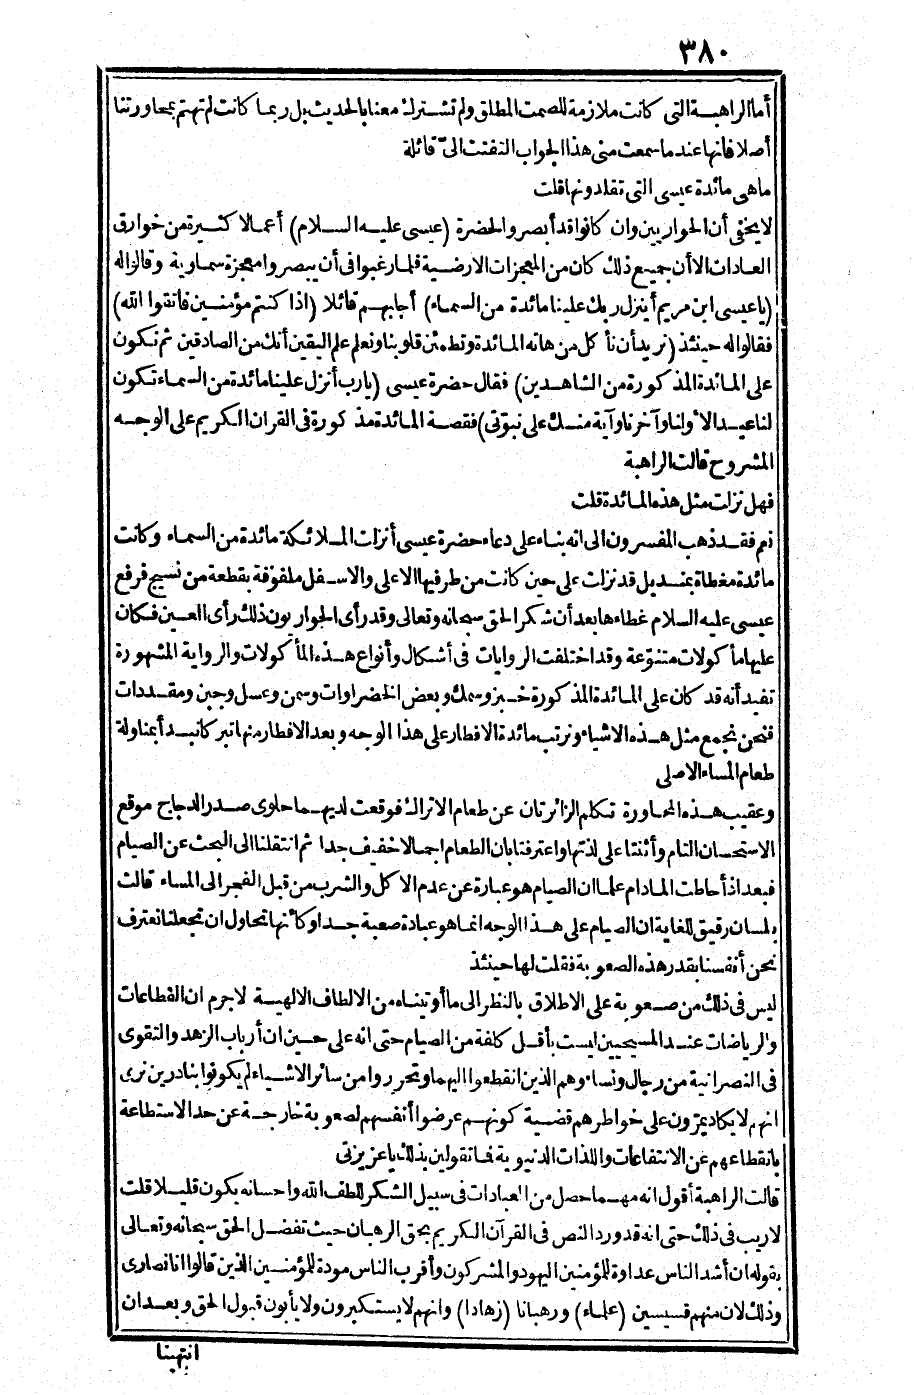 ٣٨٠
أما الراهبة التي كانت ملازمة للصمت المطلق ولم تشترك معنا بالحديث بل ربما كانت لم تهتم بمحاورتنا
أصلا فانها عند ما سمعت مني هذا الجواب التفتت الىّ قائلة
ما هي مائدة عيسى التي تقلدونها قلت
لا يخفى أن الحواريين وان كانوا قد أبصروا لحضرة (عيسى عليه السلام) أعمالا كثيرة من خوارق
العادات الا أن جميع ذلك كان من المعجزات الارضية فلما رغبوا في أن يبصروا معجزة سماوية وقالوا له
(يا عيسى ابن مريم أينزل ربك علينا مائدة من السماء) أجابهم قائلا (اذا كنتم مؤمنين فاتقوا الله)
فقالوا له حينئذ (نريد أن نأكل من هاته المائدة وتطمئن قلوبنا ونعلم علم اليقين أنك من الصادقين ثم نكون
على المائدة المذكورة من الشاهدين) فقال حضرة عيسى (يارب أنزل علينا مائدة من السماء تكون
لنا عيدا لأولنا وآخرنا وآية منك على نبوتي) فقصة المائدة مذكورة في القران الكريم على الوجه
المشروح قالت الراهبة
فهل نزلت مثل هذه المائدة قلت
نعم فقد ذهب المفسرون الى انه بناء على دعاء حضرة عيسى أنزلت الملائكة مائدة من السماء وكانت
مائدة مغطاة بمنديل قد نزلت على حين كانت من طرفيها الاعلى والاسفل ملفوفة بقطعة من نسيج فرفع
عيسى عليه السلام غطاءها بعد أن شكر الحق سبحانه وتعالى وقد رأى الحواريون ذلك رأى العين فكان
عليها مأكولات متنوّعة وقد اختلفت الروايات في أشكال وأنواع هذه المأكولات والرواية المشهورة
تفيد أنه قد كان على المائدة المذكورة خبز وسمك وبعض الخضراوات وسمن وعسل وجبن ومقددات
فنحن نجمع مثل هذه الاشياء ونرتب مائدة الافطار على هذا الوجه وبعد الافطار منها تبركا نبدأ بمناولة
طعام المساء الاصلي
وعقيب هذه المحاورة تكلم الزائرتان عن طعام الاتراك فوقعت لديهما حلوى صدر الدجاج موقع
الاستحسان التام وأثنتا على لذتها واعترفتا بان الطعام اجمالا خفيف جدا ثم انتقلنا الى البحث عن الصيام
فبعد اذ أحاطت المادام علما ان الصيام هو عبارة عن عدم الاكل والشرب من قبل الفجر الى المساء قالت
بلسان رقيق للغاية ان الصيام على هذا الوجه انما هو عبادة صعبة جدا وكأنها تحاول ان تجعلنا نعترف
نحن أنفسنا بقدر هذه الصعوبة فقلت لها حينئذ
ليس في ذلك من صعوبة على الاطلاق بالنظر الى ما أوتيناه من الالطاف الالهية لاجرم ان القطاعات
والرياضات عند المسيحيين ليست بأقل كلفة من الصيام حتى انه على حين ان أرباب الزهد والتقوى
في النصرانية من رجال ونساء وهم الذين انقطعوا اليهما وتحرروا من سائر الاشياء لم يكونوا بنادرين نرى
انهم لا يكاد يمرّون على خواطرهم قضية كونهم عرضوا أنفسهم لصعوبة خارجة عن حد الاستطاعة
بانقطاعهم عن الانتفاعات واللذات الدنيوية فما تقولين بذلك يا عزيزتي
قالت الراهبة أقول انه مهما حصل من العبادات في سبيل الشكر للطف الله واحسانه يكون قليلا قلت
لا ريب في ذلك حتى انه قد ورد النص في القرآن الكريم بحق الرهبان حيث تفضل الحق سبحانه وتعالى
بقوله ان أشد الناس عداوة للمؤمنين اليهود والمشركون وأقرب الناس مودة للمؤمنين الذين قالوا انا نصارى
وذلك لان منهم قسيسين (علماء) ورهبانا (زهادا) وانهم لا يستكبرون ولا يأبون قبول الحق وبعد ان
انتهينا